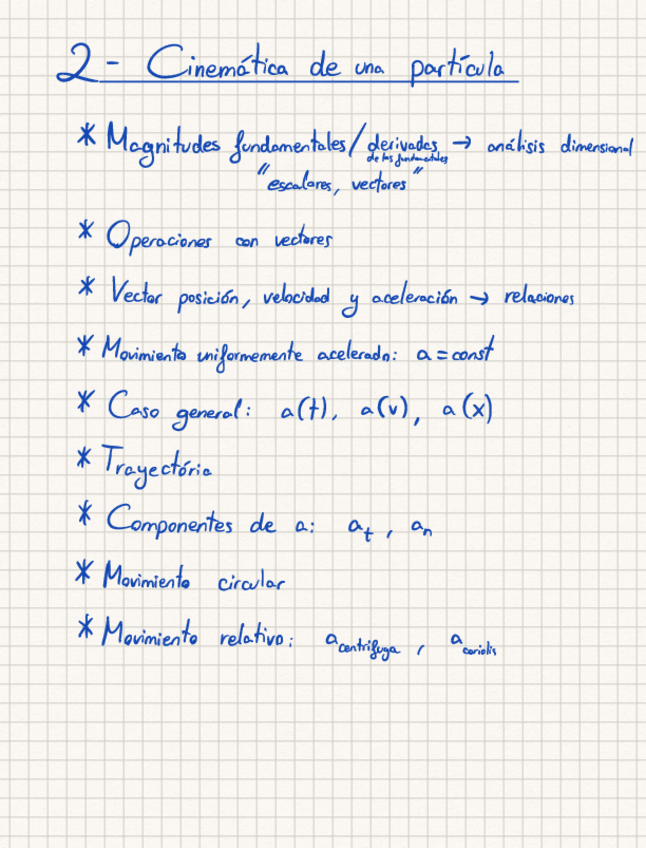 2- Cinemática de una partícula
* Magnitudes fundamentales/derivadas → análisis dimensional
de las fundamentales
"escalares, vectores"
* Operaciones con vectores
* Vector posición, velocidad y aceleración → relaciones
* Movimiento uniformemente acelerado: a = const
* Caso general: a(t), a(v), a(x)
* Trayectória
* Componentes de a: a_t, a_n
* Movimiento circular
* Movimiento relativo: a_centrífuga, a_coriolis